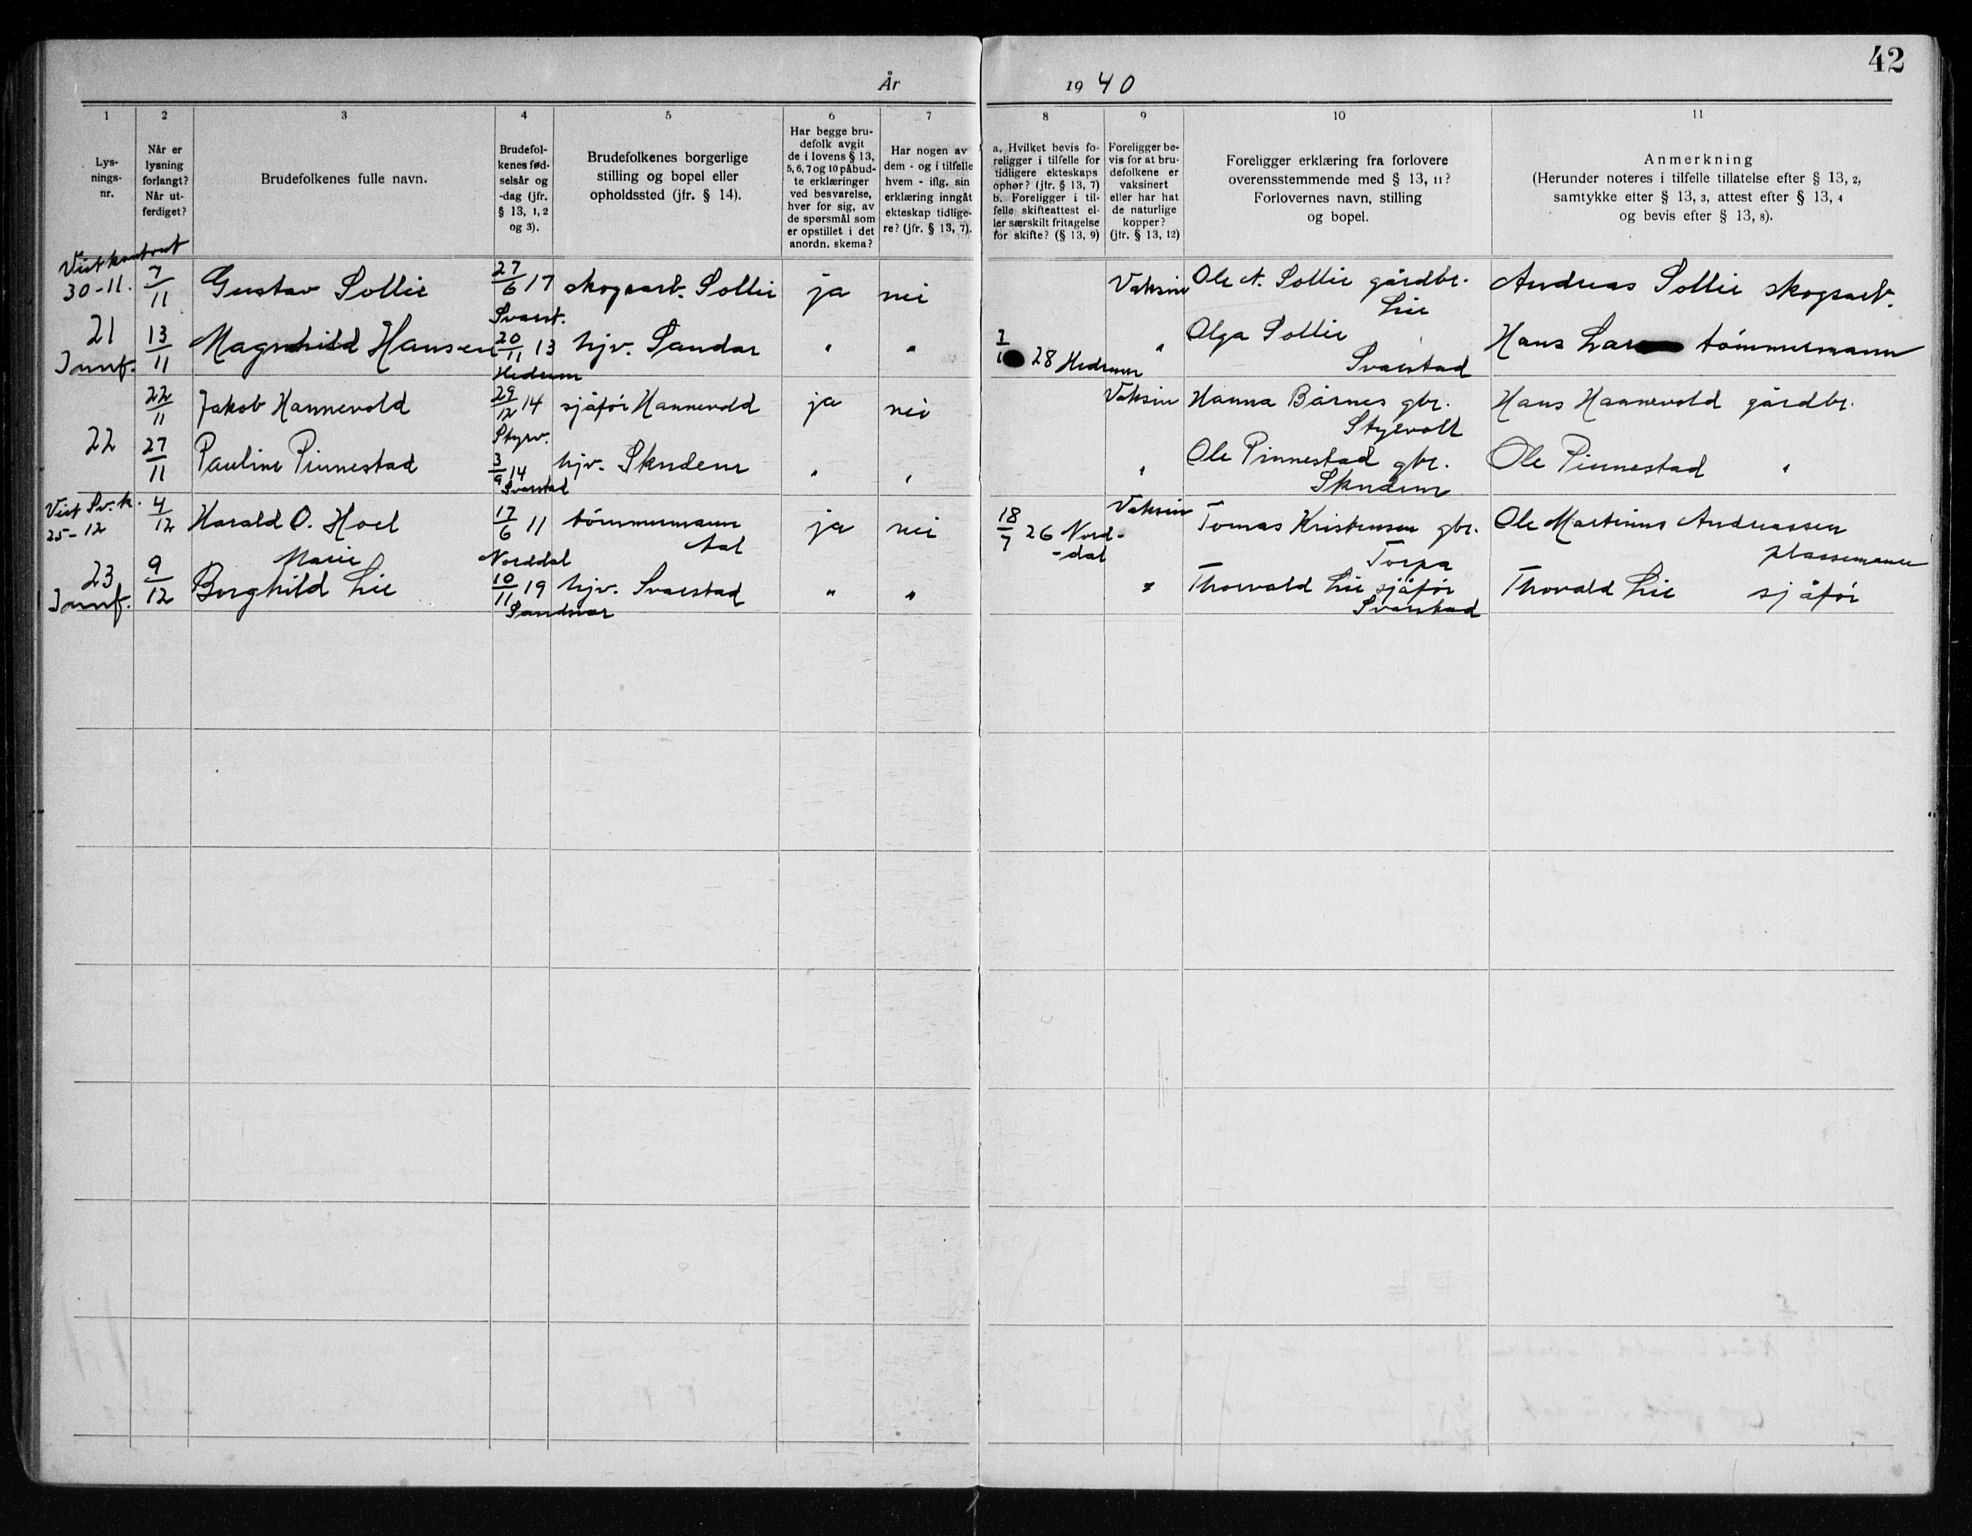 42
År 1940
1 2 3 4 5 6 7 8 9 10 11
Lys-
nings-
nr.
Når er
lysning
forlangt?
Når ut-
ferdiget?
Brudefolkenes fulle navn.
Brudefol-
kenes fød-
selsår og
-dag (jfr.
§ 13, 1, 2
og 3).
Brudefolkenes borgerlige
stilling og bopel eller
opholdssted (jfr. § 14).
Har begge bru-
defolk avgit
de i lovens § 13,
5, 6, 7 og 10 påbud-
te erklæringer
ved besvarelse,
hver for sig, av
de spørsmål som
er opstillet i det
anordn. skema?
Har nogen av
dem - og i tilfelle
hvem - iflg. sin
erklæring inngåt
ekteskap tidlige-
re? (jfr. § 13, 7).
a. Hvilket bevis fo-
religger i tilfelle for
tidligere ekteskaps
ophør? (jfr. § 13, 7)
b. Foreligger i til-
felle skifteattest el-
ler særskilt fritagelse
for skifte? (§ 13, 9)
Foreligger be-
vis for at bru-
defolkene er
vaksinert
eller har hat
de naturlige
kopper?
(jfr. § 13, 12)
Foreligger erklæring fra forlovere
overensstemmende med § 13, 11?
Forlovernes navn, stilling
og bopel.
Anmerkning
(Herunder noteres i tilfelle tillatelse efter § 13, 2,
samtykke efter § 13, 3, attest efter § 13, 4
og bevis efter § 13, 8).
30-11. 7/11 Gustav Sollie 27/6 17 skogsarb. Sollie ja nei Vaksin Ole N. Sollie gårdbr. Andreas Sollie skogsarb.
Svarst. Lie
21 13/11 Magnhild Hansen 20/11 13 hjv. Sandar " " 28 Hedrum " Olga Sollie Hans Lar tømmermann
Jarnf. Hedrum Svarstad
22/11 Jakob Hannevold 29/12 14 sjåfør Hannevold ja nei Vaksin Hanna Barnes gbr. Hans Haanevold gårdbr.
Styrv. Styrvolt
22 27/11 Pauline Pinnestad 3/9 14 hjv. Skndem " " " Ole Pinnestad gbr. Ole Pinnestad "
Svarstad Skndem
25-12 4/12 Harald O. Hoel 17/6 11 tømmermann ja nei 18/7 26 Nord- Vaksin Tomas Kristensen gbr. Ole Martinus Andreassen
Aal -dal
Marie Norddal Torpa plassemann
23 9/12 Borghild Lie 10/11 19 hjv. Svarstad " " " Thorvald Lie sjåfør Thorvald Lie sjåfør
Jarnf. Sandsvær Svarstad